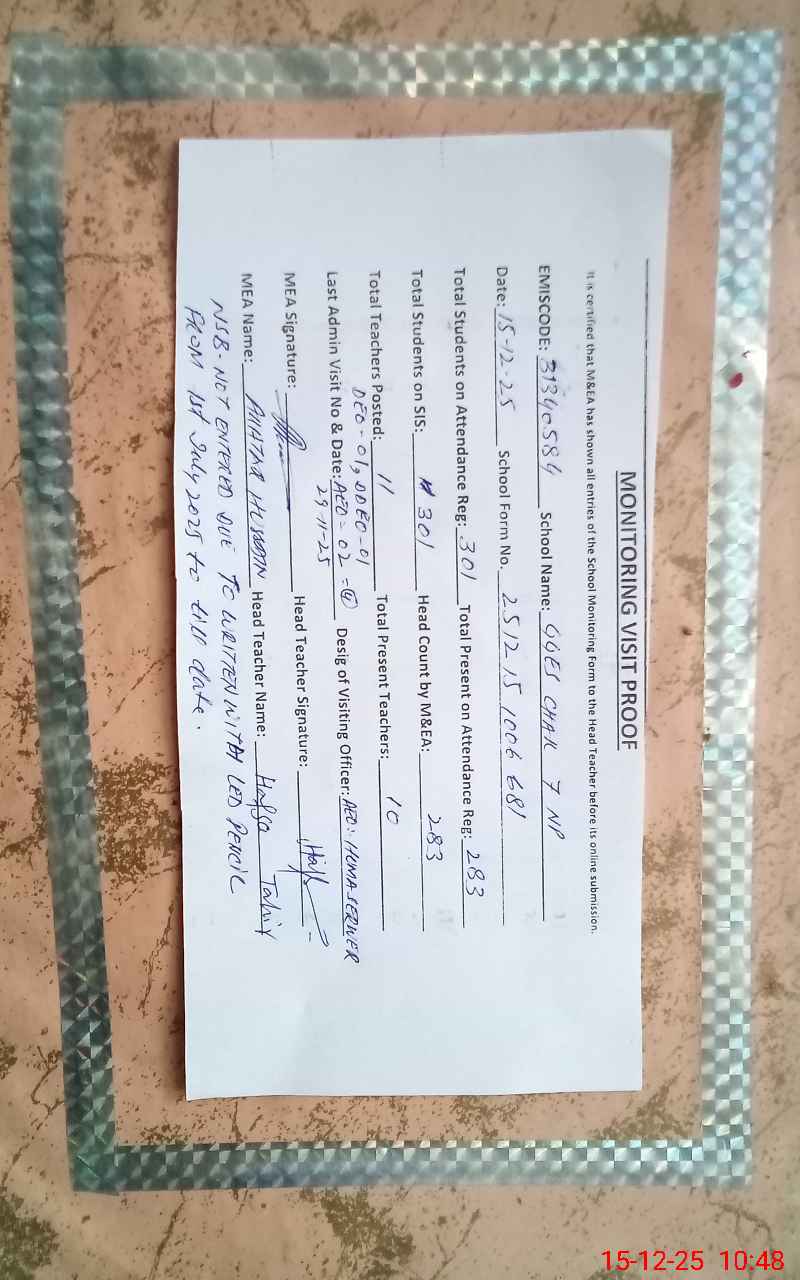 MONITORING VISIT PROOF
It is certified that M&EA has shown all entries of the School Monitoring Form to the Head Teacher before its online submission.
EMISCODE: 31340584 School Name: GGES CHAK 7 NP
Date: 15-12-25 School Form No. 2512151006681
Total Students on Attendance Reg: 301 Total Present on Attendance Reg: 283
Total Students on SIS: 301 Head Count by M&EA: 283
Total Teachers Posted: 11 Total Present Teachers: 10
DEO-01, DDEO-01
Last Admin Visit No & Date: AEO-02 =④ Desig of Visiting Officer: AEO: HUMA SERWER
29-11-25
MEA Signature: Head Teacher Signature:
MEA Name: AKHTAR HUSSAIN Head Teacher Name: Hafsa Tahir
NSB-NOT ENTERED DUE TO WRITTEN WITH LED PENCIL
FROM 1st July 2025 to till date.
15-12-25 10:48